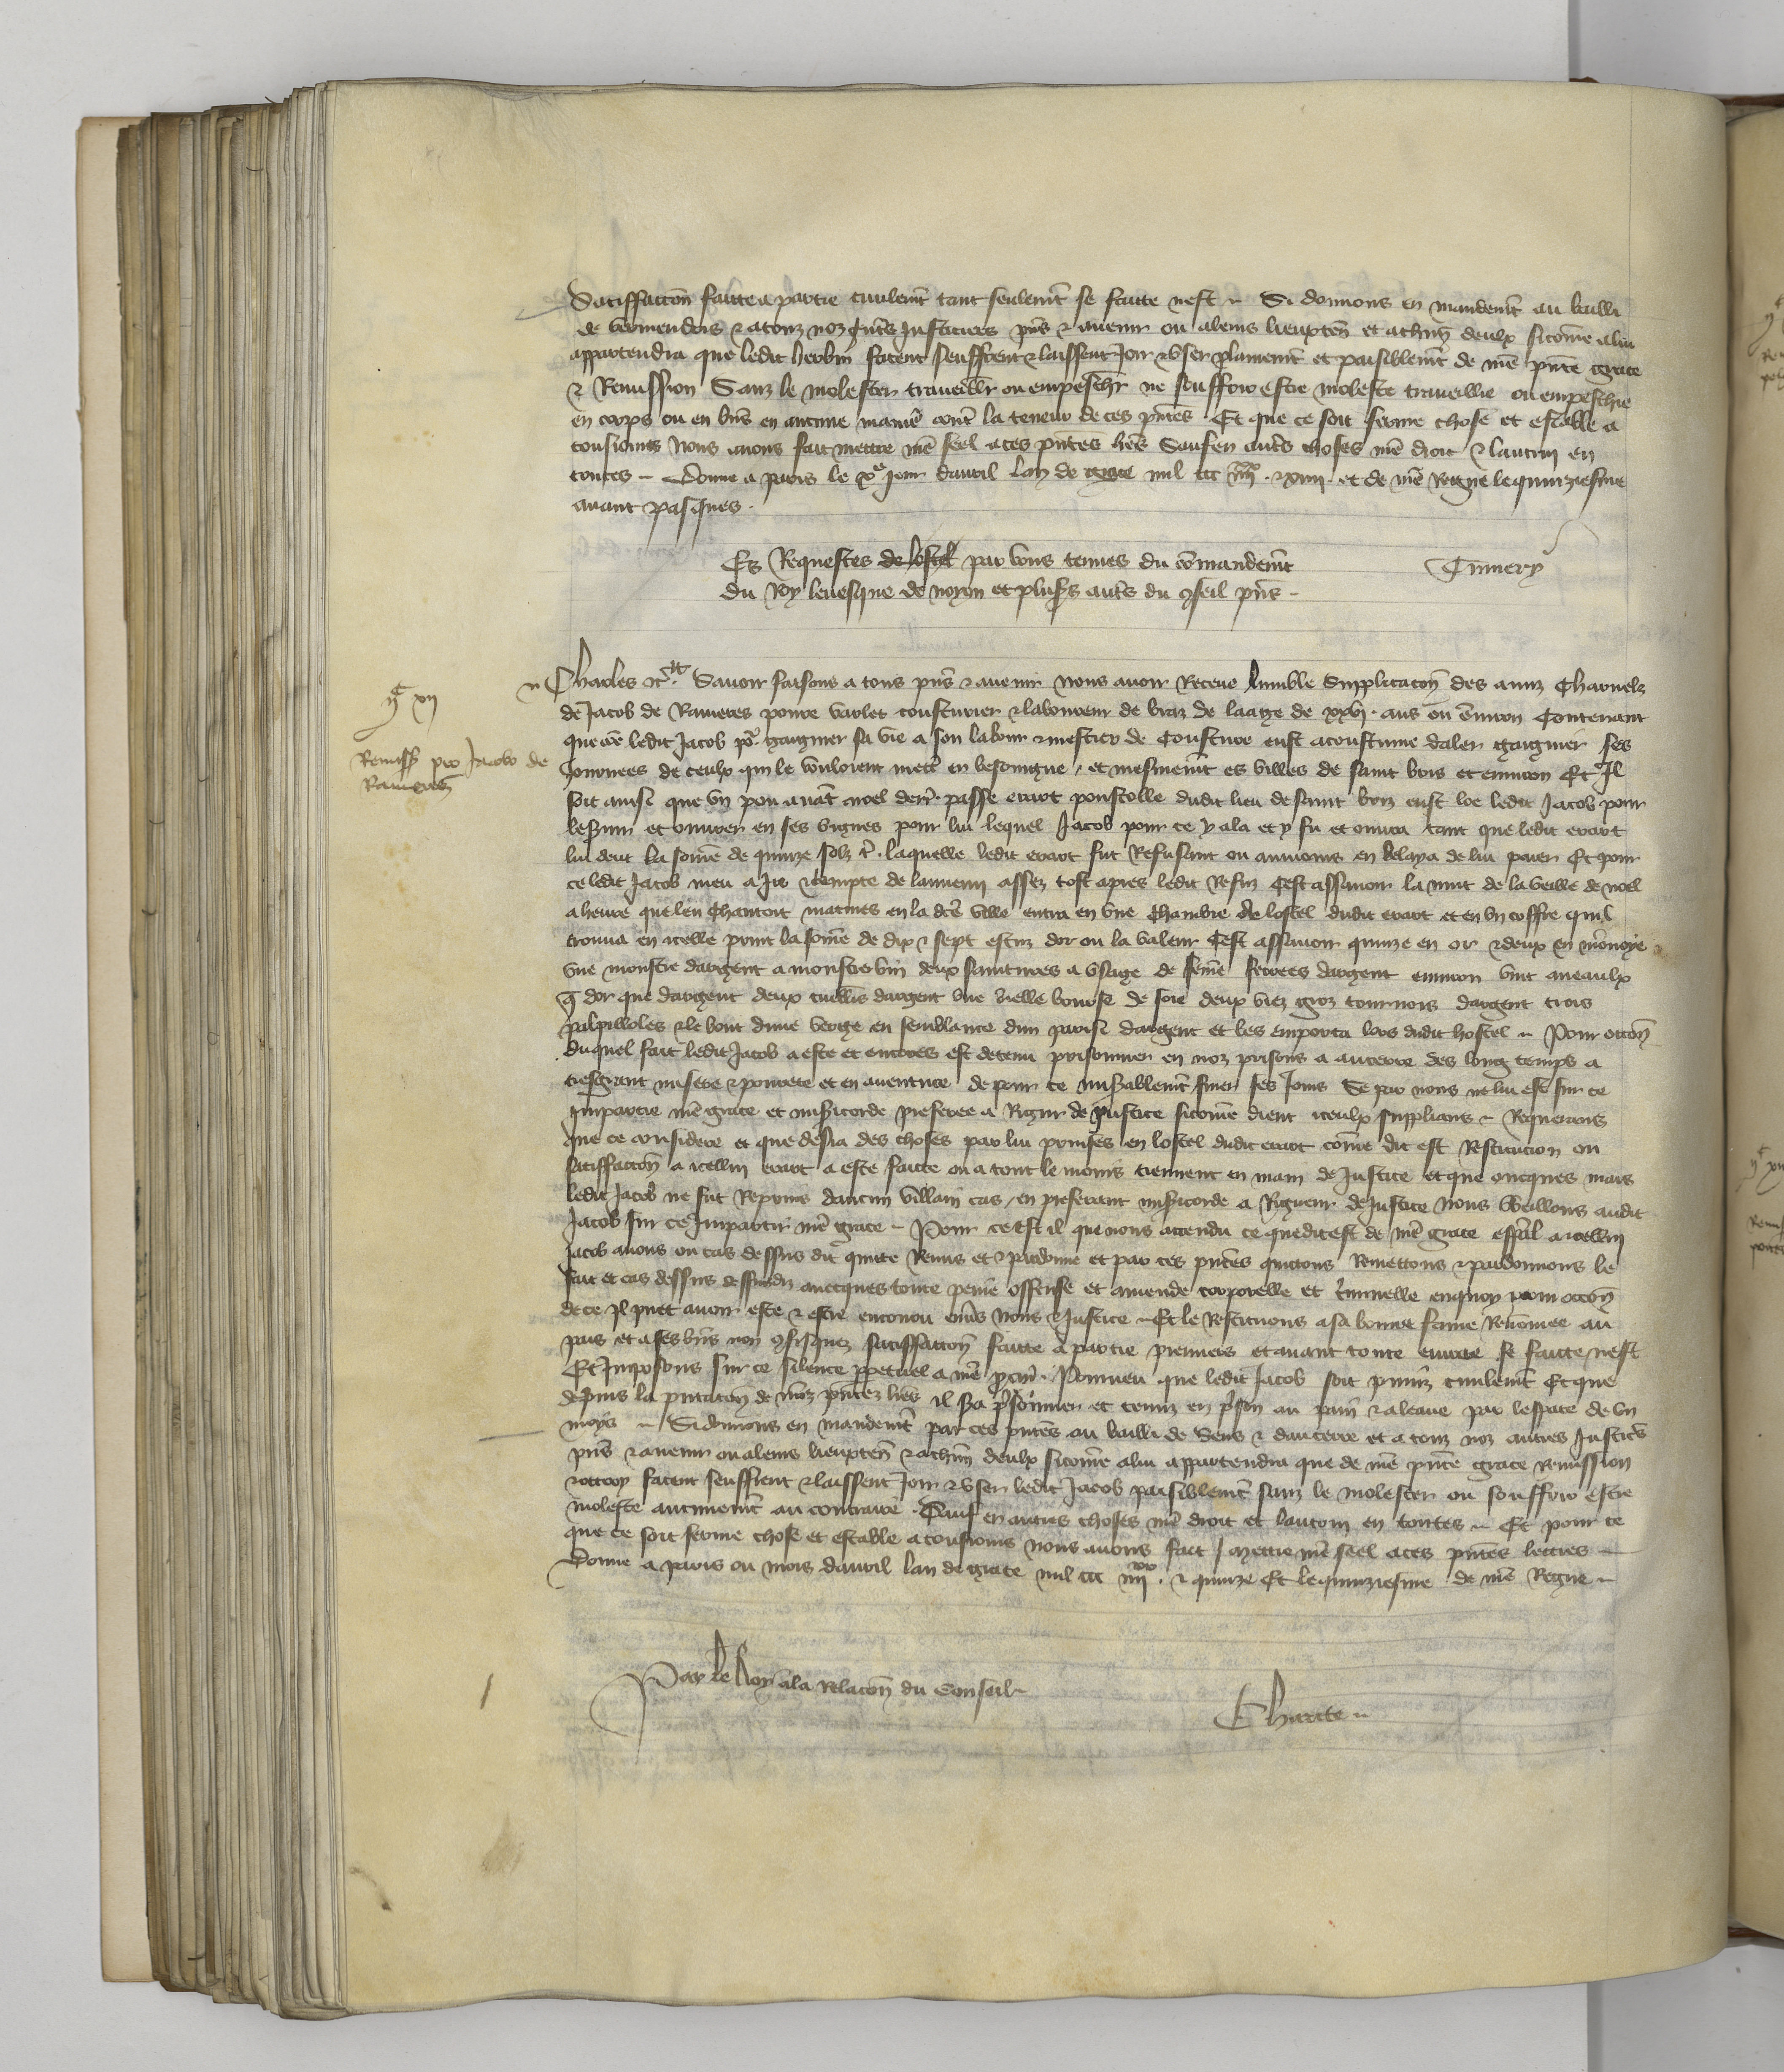 Satiffaccion faitte a partie civilemt tant seulemt se faitte nest ~ Si donnons en mandemt au bailli
de vermendois & a touz noz autres Justiciers pns & avenir ou a leurs lieuxten et a chun deulx sicome a lui
appartendra que ledit herbin facent seuffrent & laissent Joir & user plainemt et paisiblemt de nre pnte grace
& Remission Sanz le molester travaillier ou empeschier ne souffrir estre moleste travaillie ou empeschie
en corps ou en biens en aucune manie contre la teneur de ces pntes Et que ce soit ferme chose et estable a
tousiours Nous avons fait mettre nre seel a ces pntes lres Sauf en autres choses nre droit & lautrui en
toutes ~ Donne a paris le xe jour davril lan de grace mil ccc iiiixx & xiiii et de nre Regne le quinziesme
avant pasques .
Es Requestes de lostel par vous tenues du comandemt
du Roy levesque de noyon et plusrs autres du conseil pns ~
Tumery
iic xii
Remissio pro Jacobo de
Rameres
Charles etc Savoir faisons a tous pns & avenir Nous avoir Receue humble Supplicacion des amis Charnelz
de Jacob de Rameres povre varlet cousturier & laboureur de braz de laage de xxvi ans ou environ Contenant
que come ledit Jacob por gaigner sa vie a son labour & mestier de Cousture eust acoustume daler gaignier ses
Journees de ceulx qui le vouloient mettre en besoingne / et mesmemt es villes de saint bris et environ Et Il
soit ainsi que un pou avant noel derr passe erart poustolle dudit lieu de saint briz eust loe ledit Jacob pour
besoingner et ouvrer en ses vignes pour lui lequel Jacob pour ce y ala et y fu et ouvra tant que ledit erart
lui deut la somme de quinze solz t. laquelle ledit erart fut Refusant ou aumoins en delaya de lui paier Et pour
ce ledit Jacob meu a Ire & tempte de lannemi assez tost apres ledit Refuz Cest assavoir la nuit de la veille de noel
a heure que len Chantoit matines en la dce ville entra en une Chambre de lostel dudit erart et en un coffre quil
trouva en icelle print la somme de dix & sept escuz dor ou la valeur Cest assavoir quinze en or & deux en monnoye
une monstre dargent a monstrer vin deux saintures a usage de feme ferrees dargent environ vint aneaulx
q dor que dargent deux cuillers dargent une vielle bourse de soie deux viez gros tournois dargent trois
palpilloles & le bout dune verge en semblance dun parisi dargent et les emporta hors dudit hostel ~ Pour occon
duquel fait ledit Jacob a este et encores est detenu prisonnier en noz prisons a aucerre des long temps a
tresgrant misere & povrete et en aventure de pour ce miserablemt finer ses Jours Se par nous ne lui est sur ce
Impartie nre grace et misicorde preferee a Rigur de Justice sicome dient iceulx supplians ~ Requerans
que ce considere et que desia des choses par lui prinses en lostel dudit erart come dit est Restitucion ou
satiffaccion a icellui erart a este faitte ou a tout le moins tiennent en main de Justice et que oncques mais
ledit Jacob ne fut Reprins daucun villain cas / en preferant misicorde a Rigueur de Justice Nous vueillons audit
Jacob sur ce Impartir nre grace ~ Pour ce est il que nous attendu ce que dit est de nre grace especl a icellui
Jacob avons ou cas dessus dit quitte Remis et & pardonne et par ces pntes quittons Remettons & pardonnons le
fait et cas dessus dessusdiz avecques toute peine offense et amende corporelle et criminelle en quoy pour occon
de ce Il puet avoir este & estre encouru envers Nous & Justice ~ Et le Restituons a sa bonne fame Renomee au
pais et a ses biens non confisquez satiffaccion faitte a partie premiers et avant toute euvre se faitte nest
Et Imposons sur ce silence perpetuel a nre procur . Pourveu que ledit Jacob soit puniz civilemt Et que
depuis la pntacion de noz pntez lres il sera prisonnier et tenuz en prison au pain & a leaue par lespace de un
moys ~ Si donnons en mandemt par ces pntes au bailli de Sens & daucerre et a touz noz autres Justicers
pns & avenir ou a leurs lieuxten & a chun deulx sicome a lui appartendra que de nre pnte grace Remission
& ottroy facent seuffrent & laissent Joir & user ledit Jacob paisiblemt sanz le molester ou souffrir estre
moleste aucunemt au contraire . Sauf en autres choses nre droit et lautrui en toutes ~ Et pour ce
que ce soit ferme chose et estable a tousiours nous avons fait mettre nre seel a ces pntes lettres ~
Donne a paris ou mois davril lan de grace mil ccc iiiixx & quinze Et le quinziesme de nre Regne ~
Par le Roy a la relacion du Conseil ~
Charite ~